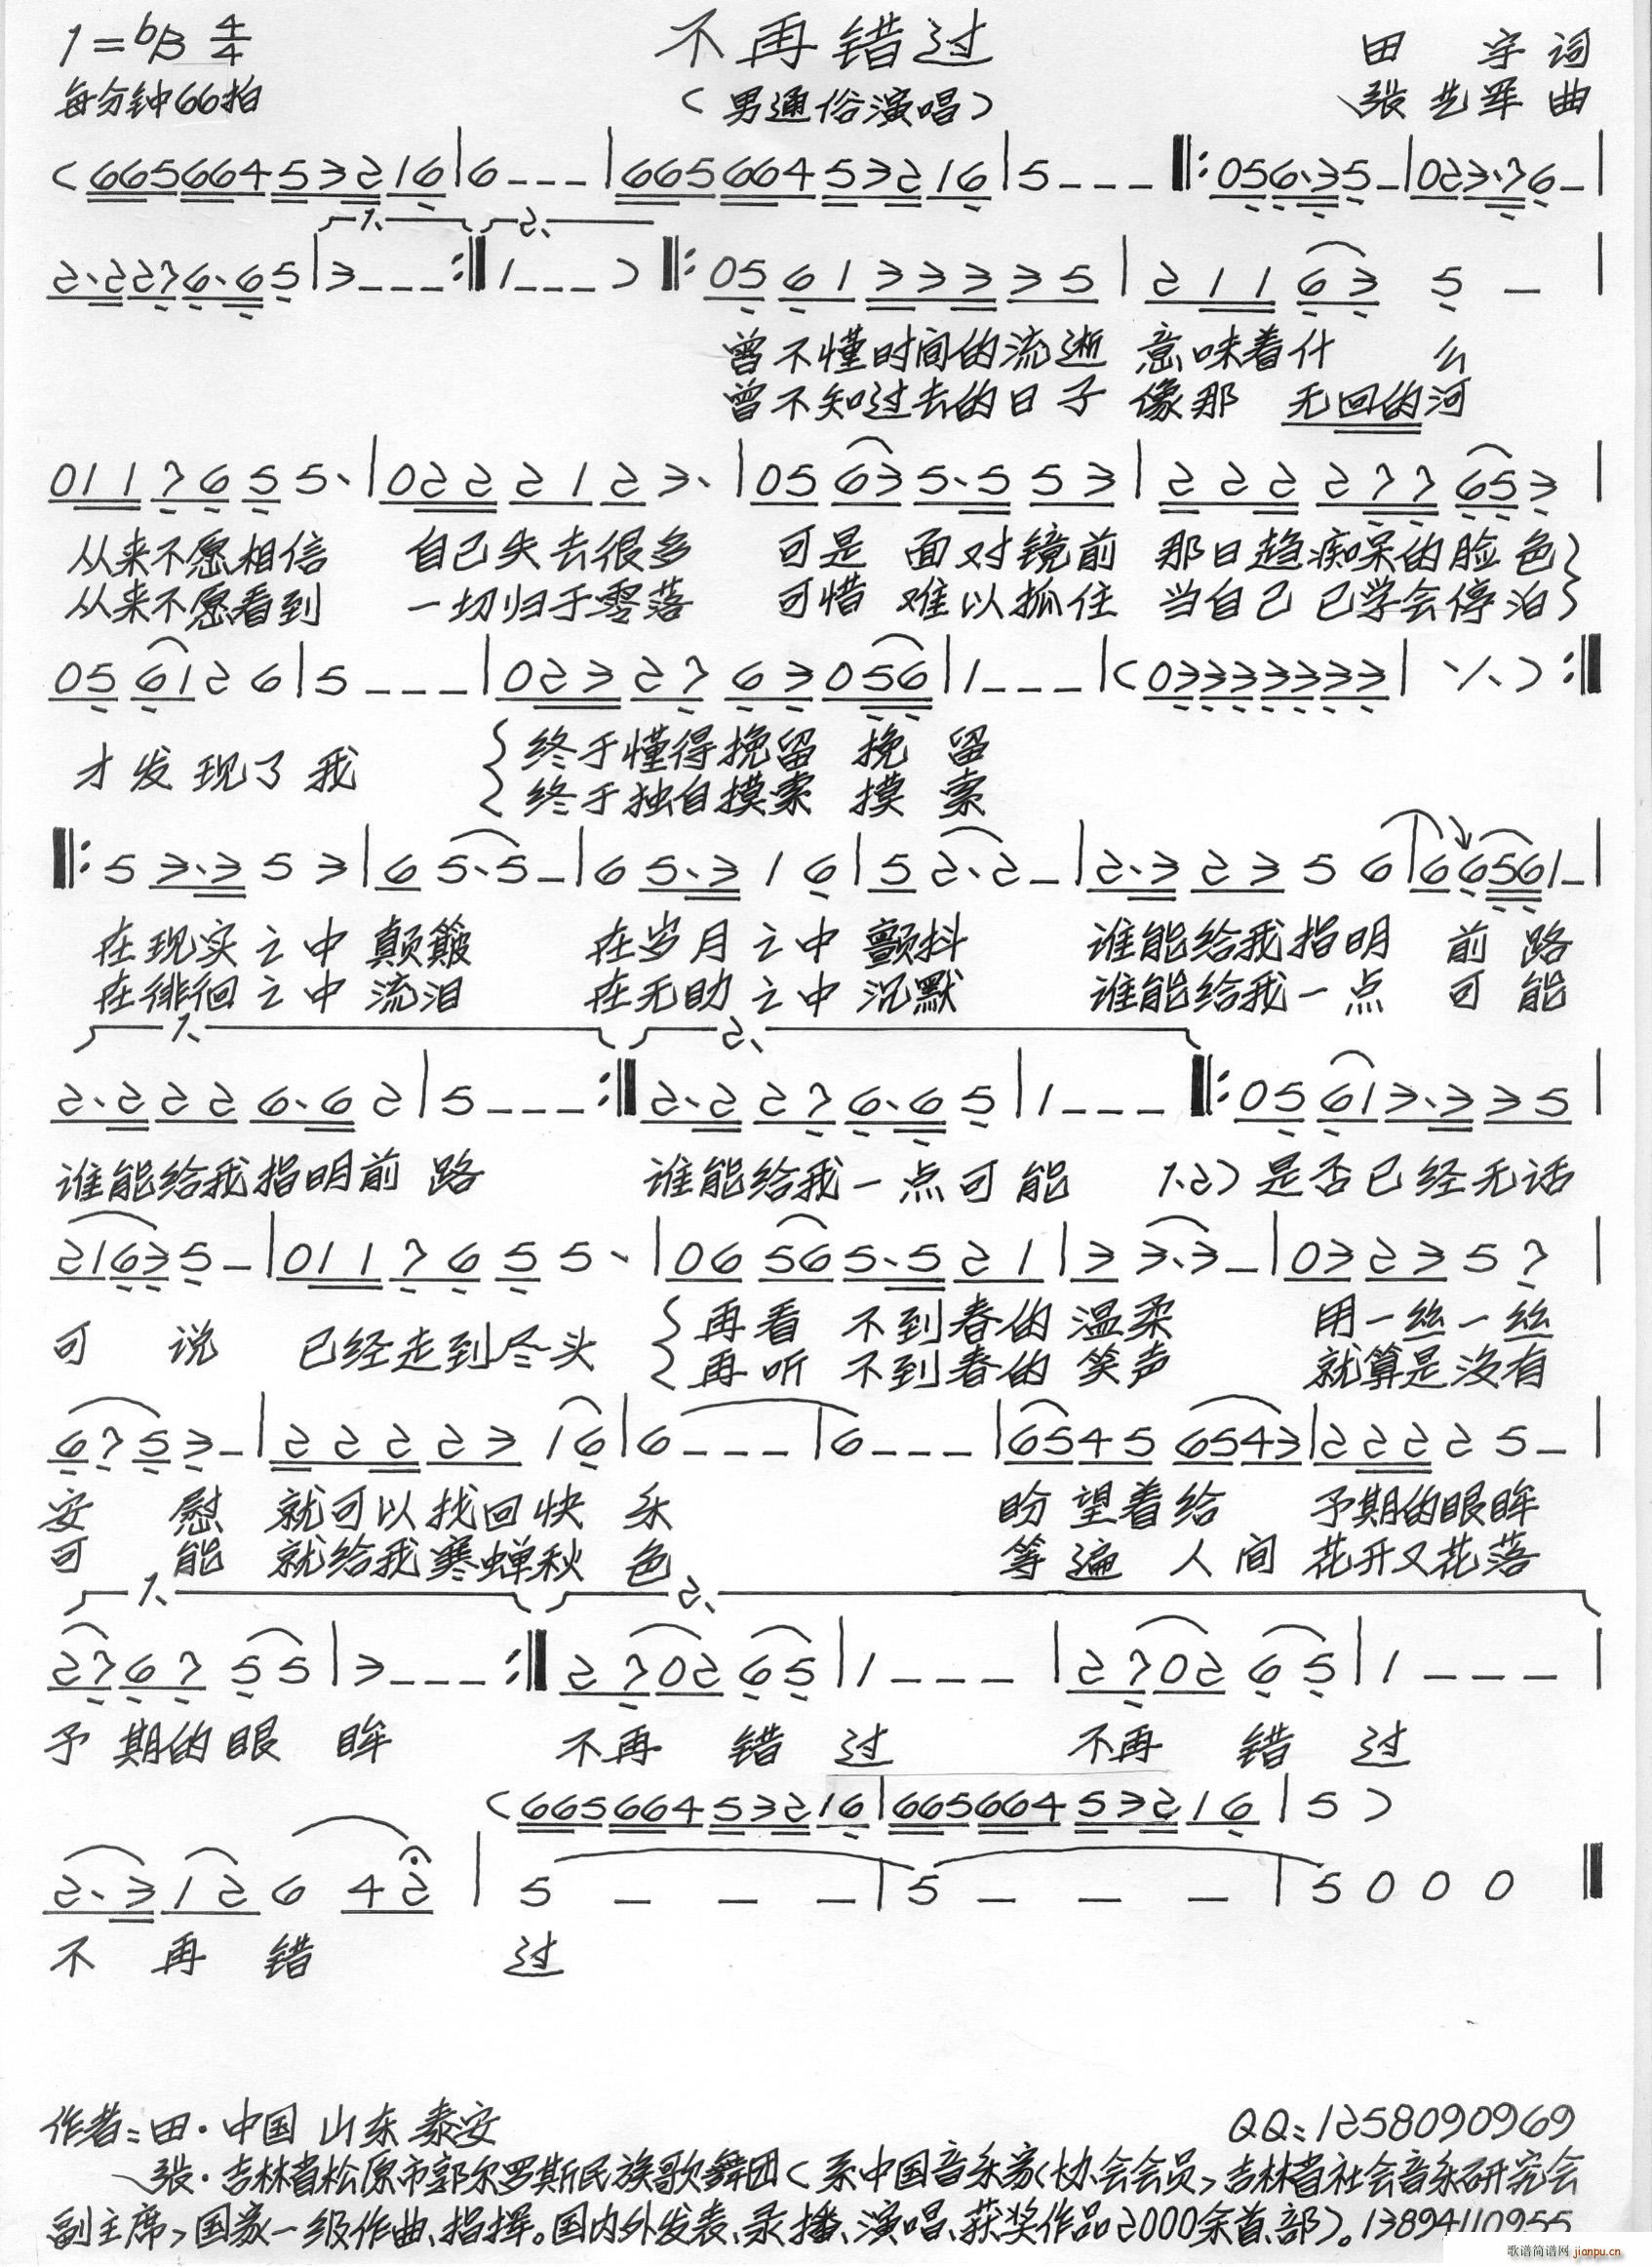 1=bB 4/4
不再错过
田 宇 词
每分钟66拍
(男通俗演唱)
张艺军 曲
(6656645321 6|6---|6656645321 6|5---‖:056·35-|023·76-|
1、 2、
2·2276·65|3---:‖1---)‖:05 61 333 35|211 63 5-|
曾不懂时间的流逝 意味着什 么
曾不知过去的日子 像那 无回的河
011 76 5 5·|022 21 2 3·|05 63 5·5 53|222 277 65 3|
从来不愿相信 自己失去很多 可是 面对镜前 那日趋痴呆的脸色}
从来不愿看到 一切归于零落 可惜 难以抓住 当自己 已学会停泊}
05 61 2 6|5---|023 27 63 056|1---|(03333333|٪):‖
才发现了我
{终于懂得挽留 挽 留
{终于独自摸索 摸 索
‖:5 3·3 5 3|6 5·5-|6 5·3 1 6|5 2·2-|2·3 23 5 6|66561-|
在现实之中 颠簸 在岁月之中 颤抖 谁能给我指明 前 路
在徘徊之中 流泪 在无助之中 沉默 谁能给我一点 可 能
1、 2、
2·2 22 6·6 2|5---:‖2·2 27 6·6 5|1---‖:05 61 3·3 35|
谁能给我指明前 路 谁能给我一点可 能 1、2)是否已经无话
2163 5-|011 76 5 5·|06 56 5·5 21|3 3·3-|03 23 5 7|
可 说 已经走到尽头
{再看 不到春的 温柔 用一丝一丝
{再听 不到春的 笑声 就算是没有
67 5 3-|222 23 16|6---|6---|6545 6543|222 2 5-|
安 慰 就可以找回快 乐 盼 望着给 予期的眼眸
可 能 就给我寒蝉秋 色 等 遍 人 间 花开又花落
1、 2、
27 67 5 5|3---:‖27 02 6 5|1---|27 02 6 5|1---|
予 期的眼 眸 不再 错 过 不再 错 过
(6656645321 6|6656645321 6|5)
2·3 12 6 42|5---|5---|5 0 0 0‖
不 再 错 过
作者:田·中国 山东 泰安 QQ:1258090969
张·吉林省松原市郭尔罗斯民族歌舞团(系中国音乐家(协会会员,吉林省社会音乐研究会
副主席,国家一级作曲、指挥。国内外发表、录播、演唱、获奖作品2000余首、部)。13894110955
歌谱简谱网 jianpu.cn